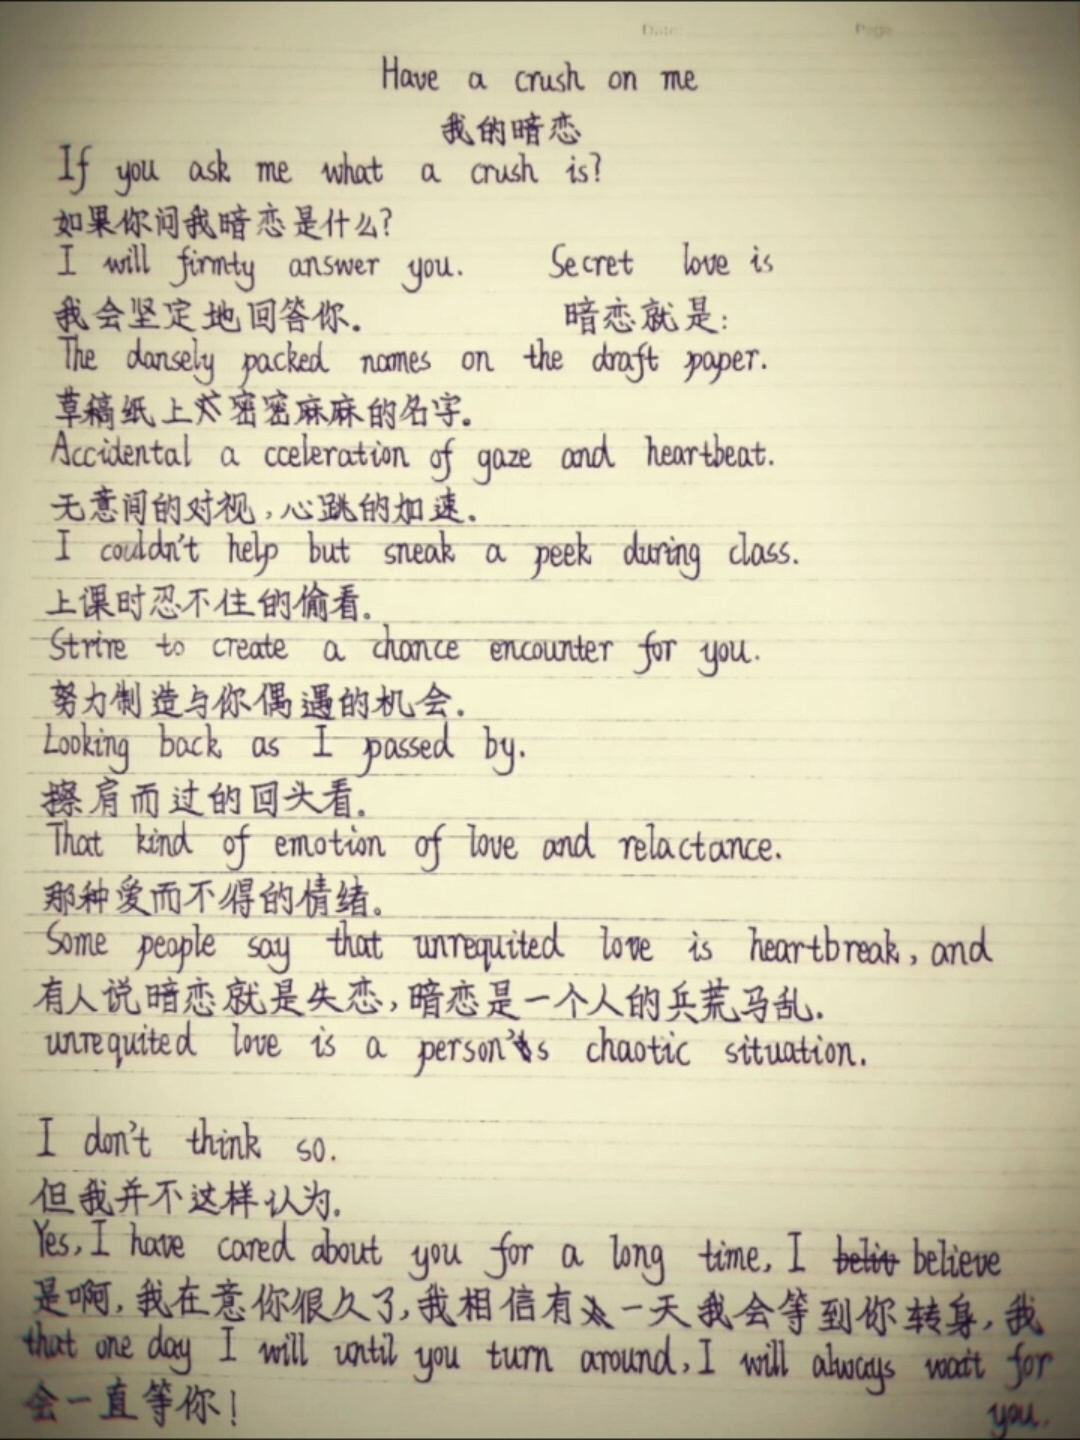 Date: Page
Have a crush on me
我的暗恋
If you ask me what a crush is?
如果你问我暗恋是什么?
I will firmty answer you. Secret love is
我会坚定地回答你。 暗恋就是:
The dansely packed names on the draft paper.
草稿纸上密密麻麻的名字。
Accidental a cceleration of gaze and heartbeat.
无意间的对视,心跳的加速。
I couldn't help but sneak a peek during class.
上课时忍不住的偷看。
Strire to create a chance encounter for you.
努力制造与你偶遇的机会。
Looking back as I passed by.
擦肩而过的回头看。
That kind of emotion of love and relactance.
那种爱而不得的情绪。
Some people say that unrequited love is heartbreak, and
有人说暗恋就是失恋,暗恋是一个人的兵荒马乱。
unrequited love is a person's chaotic situation.
I don't think so.
但我并不这样认为。
Yes, I have cared about you for a long time, I beliv believe
是啊,我在意你很久了,我相信有一天我会等到你转身,我
that one day I will until you turn around, I will always wait for
会一直等你! you.